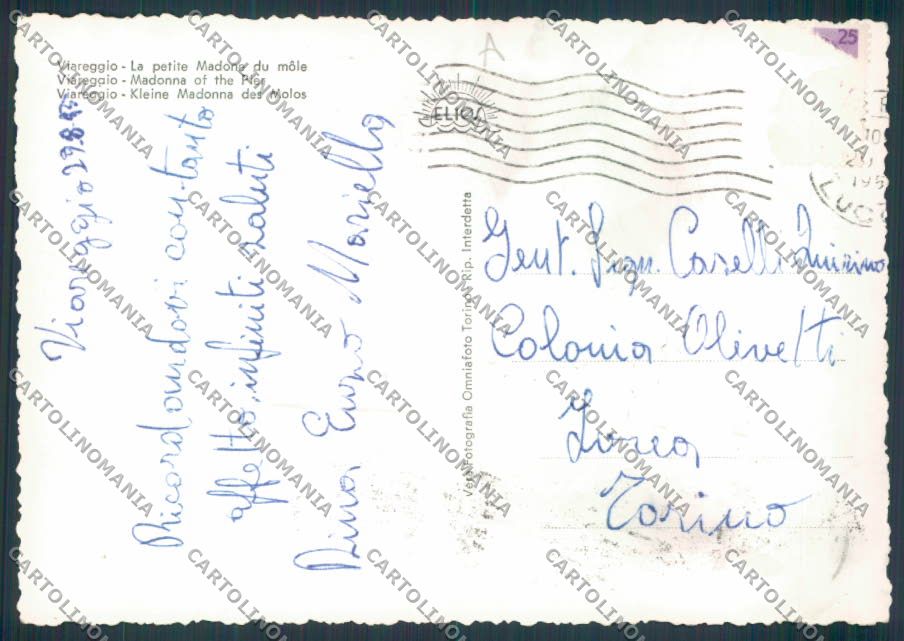 Viareggio - La petite Madone du môle
Viareggio - Madonna of the Pier
Viareggio - Kleine Madonna des Molos
Viareggio 29.8.
Ricordandovi con tanto
affetto, infiniti saluti
Rina Enzo Mariella
Vera Fotografia Omniafoto Torino - Rip. Interdetta
ELIOS
25
10
195
LUCC
Gent. Sign. Caselli Quirino
Colonia Olivetti
Ivrea
Torino
A
CARTOLINOMANIA